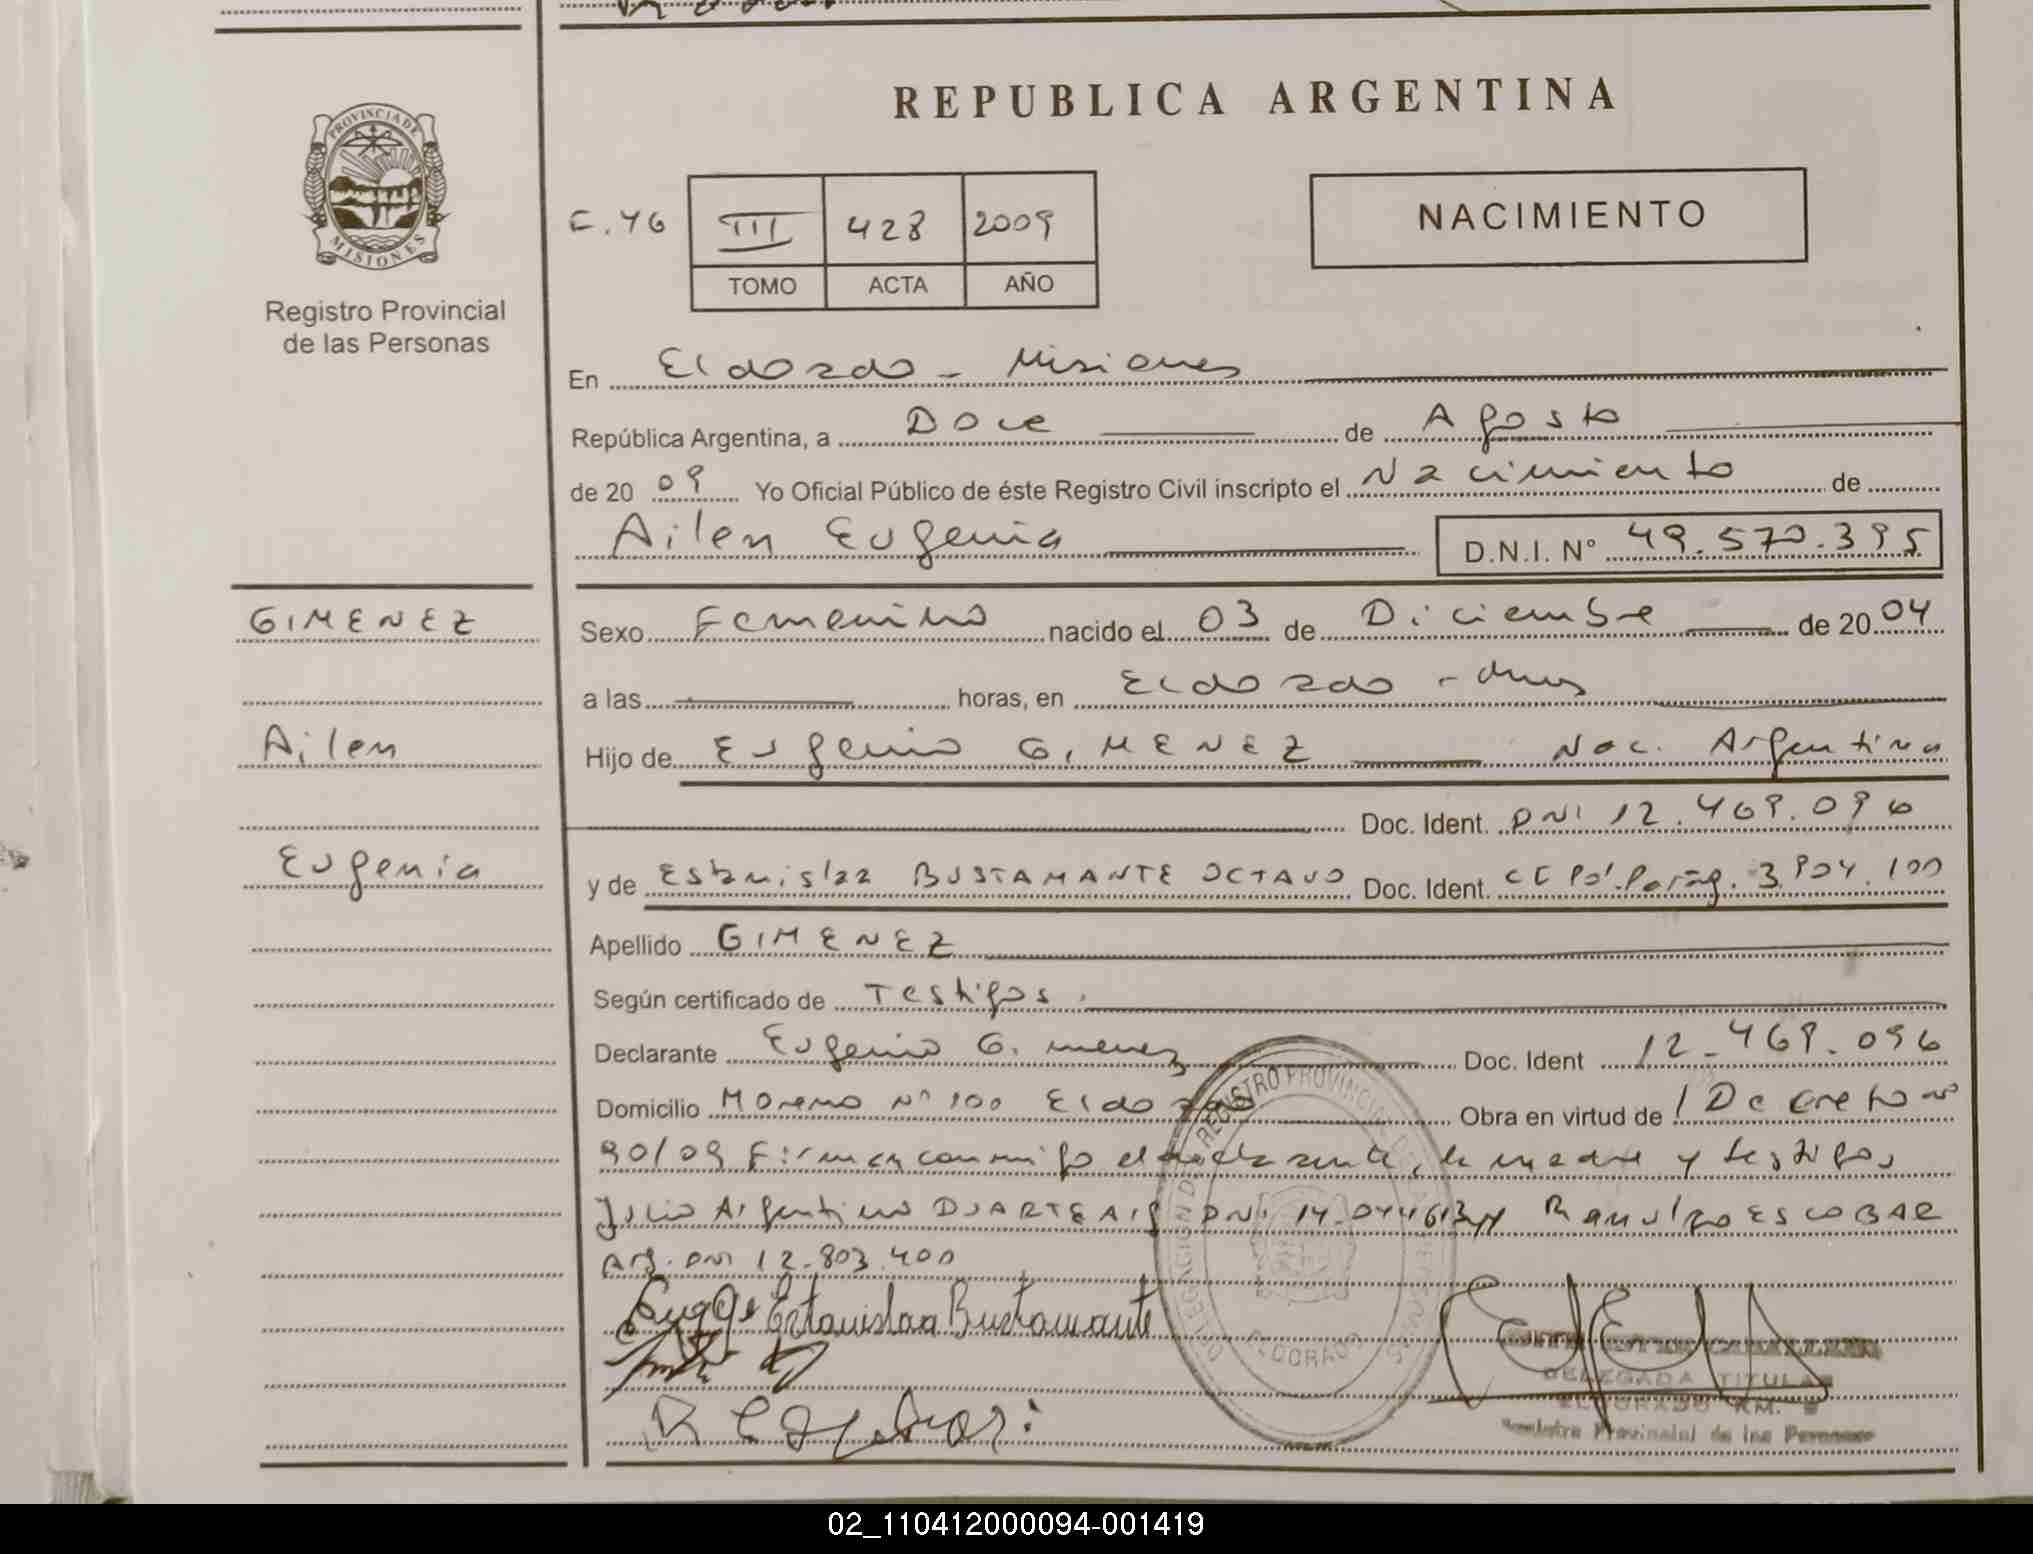 REPUBLICA ARGENTINA
PROVINCIA DE
MISIONES
Registro Provincial
de las Personas
F. 46 III 428 2009
TOMO ACTA AÑO
NACIMIENTO
En Eldorado - Misiones
República Argentina, a Doce de Agosto
de 2009 Yo Oficial Público de éste Registro Civil inscripto el Nacimiento de
Ailen Eugenia D.N.I. N° 49.570.395
GIMENEZ
Ailen
Eugenia
Sexo Femenino nacido el 03 de Diciembre de 2004
a las horas, en Eldorado - Mnes
Hijo de Eugenio GIMENEZ Nac. Argentina
Doc. Ident. DNI 12.469.096
y de Estanislaa BUSTAMANTE OCTAVO Doc. Ident. CI Pol. Parag. 3.904.100
Apellido GIMENEZ
Según certificado de Testigos.
Declarante Eugenio Gimenez Doc. Ident 12.469.096
Domicilio Moreno N° 100 Eldorado Obra en virtud de Decreto N°
90/09 Firman conmigo el declarante, la madre y testigos
Julio Argentino DUARTE Arg DNI y Ranulfo ESCOBAR
Arg. DNI 12.803.400
Estanislaa Bustamante
DELEGACION REGISTRO PROVINCIAL DE LAS PERSONAS
ELDORADO
DELEGADA TITULAR
ELDORADO KM. 9
Registro Provincial de las Personas
02_110412000094-001419